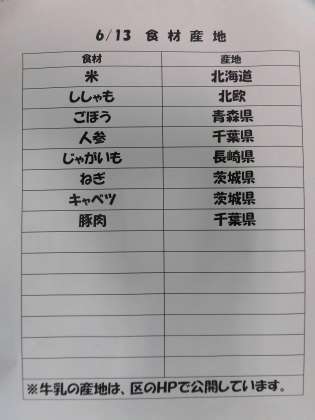 6/13 食材産地
食材 産地
米 北海道
ししゃも 北欧
ごぼう 青森県
人参 千葉県
じゃがいも 長崎県
ねぎ 茨城県
キャベツ 茨城県
豚肉 千葉県
※牛乳の産地は、区のHPで公開しています。